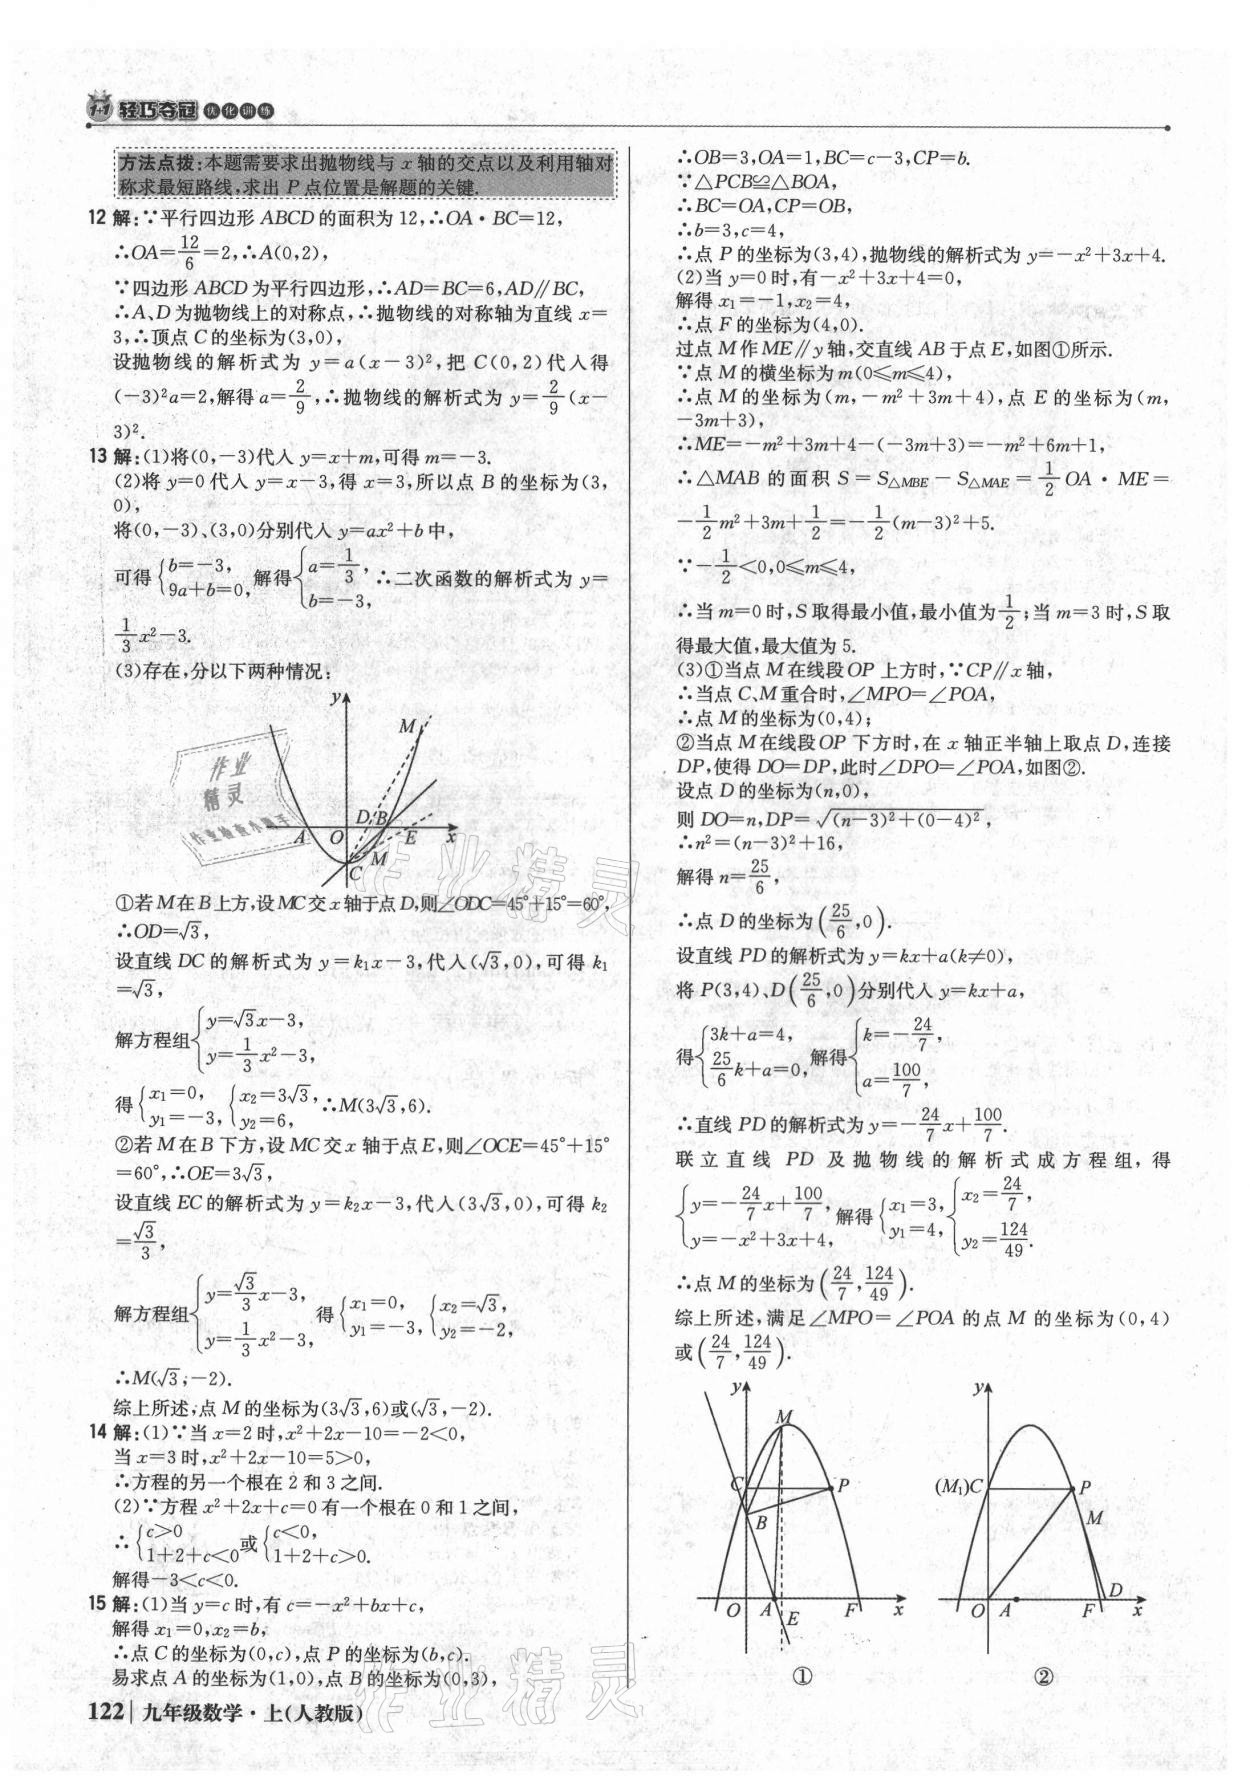 1+1 轻巧夺冠 优化训练
方法点拨:本题需要求出抛物线与 x 轴的交点以及利用轴对
称求最短路线,求出 P 点位置是解题的关键.
12 解:∵平行四边形 ABCD 的面积为 12,∴OA·BC=12,
∴OA=12/6=2,∴A(0,2),
∵四边形 ABCD 为平行四边形,∴AD=BC=6,AD∥BC,
∴A、D 为抛物线上的对称点,∴抛物线的对称轴为直线 x=
3,∴顶点 C 的坐标为(3,0),
设抛物线的解析式为 y=a(x-3)²,把 C(0,2)代入得
(-3)²a=2,解得 a=2/9,∴抛物线的解析式为 y=2/9(x-
3)².
13 解:(1)将(0,-3)代入 y=x+m,可得 m=-3.
(2)将 y=0 代入 y=x-3,得 x=3,所以点 B 的坐标为(3,
0),
将(0,-3)、(3,0)分别代入 y=ax²+b 中,
可得{b=-3, 9a+b=0, 解得{a=1/3, b=-3, ∴二次函数的解析式为 y=
1/3x²-3.
(3)存在,分以下两种情况:
y
M
D B
A O E x
M
C
①若 M 在 B 上方,设 MC 交 x 轴于点 D,则∠ODC=45°+15°=60°,
∴OD=√3,
设直线 DC 的解析式为 y=k₁x-3,代入(√3,0),可得 k₁
=√3,
解方程组{y=√3x-3, y=1/3x²-3,
得{x₁=0, y₁=-3, {x₂=3√3, y₂=6, ∴M(3√3,6).
②若 M 在 B 下方,设 MC 交 x 轴于点 E,则∠OCE=45°+15°
=60°,∴OE=3√3,
设直线 EC 的解析式为 y=k₂x-3,代入(3√3,0),可得 k₂
=√3/3,
解方程组{y=√3/3x-3, y=1/3x²-3, 得{x₁=0, y₁=-3, {x₂=√3, y₂=-2,
∴M(√3,-2).
综上所述,点 M 的坐标为(3√3,6)或(√3,-2).
14 解:(1)∵当 x=2 时,x²+2x-10=-2<0,
当 x=3 时,x²+2x-10=5>0,
∴方程的另一个根在 2 和 3 之间.
(2)∵方程 x²+2x+c=0 有一个根在 0 和 1 之间,
∴{c>0 1+2+c<0 或{c<0, 1+2+c>0.
解得-3<c<0.
15 解:(1)当 y=c 时,有 c=-x²+bx+c,
解得 x₁=0,x₂=b,
∴点 C 的坐标为(0,c),点 P 的坐标为(b,c).
易求点 A 的坐标为(1,0),点 B 的坐标为(0,3),
∴OB=3,OA=1,BC=c-3,CP=b.
∵△PCB≌△BOA,
∴BC=OA,CP=OB,
∴b=3,c=4,
∴点 P 的坐标为(3,4),抛物线的解析式为 y=-x²+3x+4.
(2)当 y=0 时,有-x²+3x+4=0,
解得 x₁=-1,x₂=4,
∴点 F 的坐标为(4,0).
过点 M 作 ME∥y 轴,交直线 AB 于点 E,如图①所示.
∵点 M 的横坐标为 m(0≤m≤4),
∴点 M 的坐标为(m,-m²+3m+4),点 E 的坐标为(m,
-3m+3),
∴ME=-m²+3m+4-(-3m+3)=-m²+6m+1,
∴△MAB 的面积 S=S△MBE-S△MAE=1/2OA·ME=
-1/2m²+3m+1/2=-1/2(m-3)²+5.
∵-1/2<0,0≤m≤4,
∴当 m=0 时,S 取得最小值,最小值为1/2;当 m=3 时,S 取
得最大值,最大值为 5.
(3)①当点 M 在线段 OP 上方时,∵CP∥x 轴,
∴当点 C、M 重合时,∠MPO=∠POA,
∴点 M 的坐标为(0,4);
②当点 M 在线段 OP 下方时,在 x 轴正半轴上取点 D,连接
DP,使得 DO=DP,此时∠DPO=∠POA,如图②.
设点 D 的坐标为(n,0),
则 DO=n,DP=√(n-3)²+(0-4)²,
∴n²=(n-3)²+16,
解得 n=25/6,
∴点 D 的坐标为(25/6,0).
设直线 PD 的解析式为 y=kx+a(k≠0),
将 P(3,4)、D(25/6,0)分别代入 y=kx+a,
得{3k+a=4, 25/6k+a=0, 解得{k=-24/7, a=100/7,
∴直线 PD 的解析式为 y=-24/7x+100/7.
联立直线 PD 及抛物线的解析式成方程组,得
{y=-24/7x+100/7, y=-x²+3x+4, 解得{x₁=3, y₁=4, {x₂=24/7, y₂=124/49.
∴点 M 的坐标为(24/7,124/49).
综上所述,满足∠MPO=∠POA 的点 M 的坐标为(0,4)
或(24/7,124/49).
y
M
C P
B
O A E F x
①
y
(M₁)C P
M
D
O A F x
②
122 九年级数学·上(人教版)
作业精灵
作业精灵
作业精灵